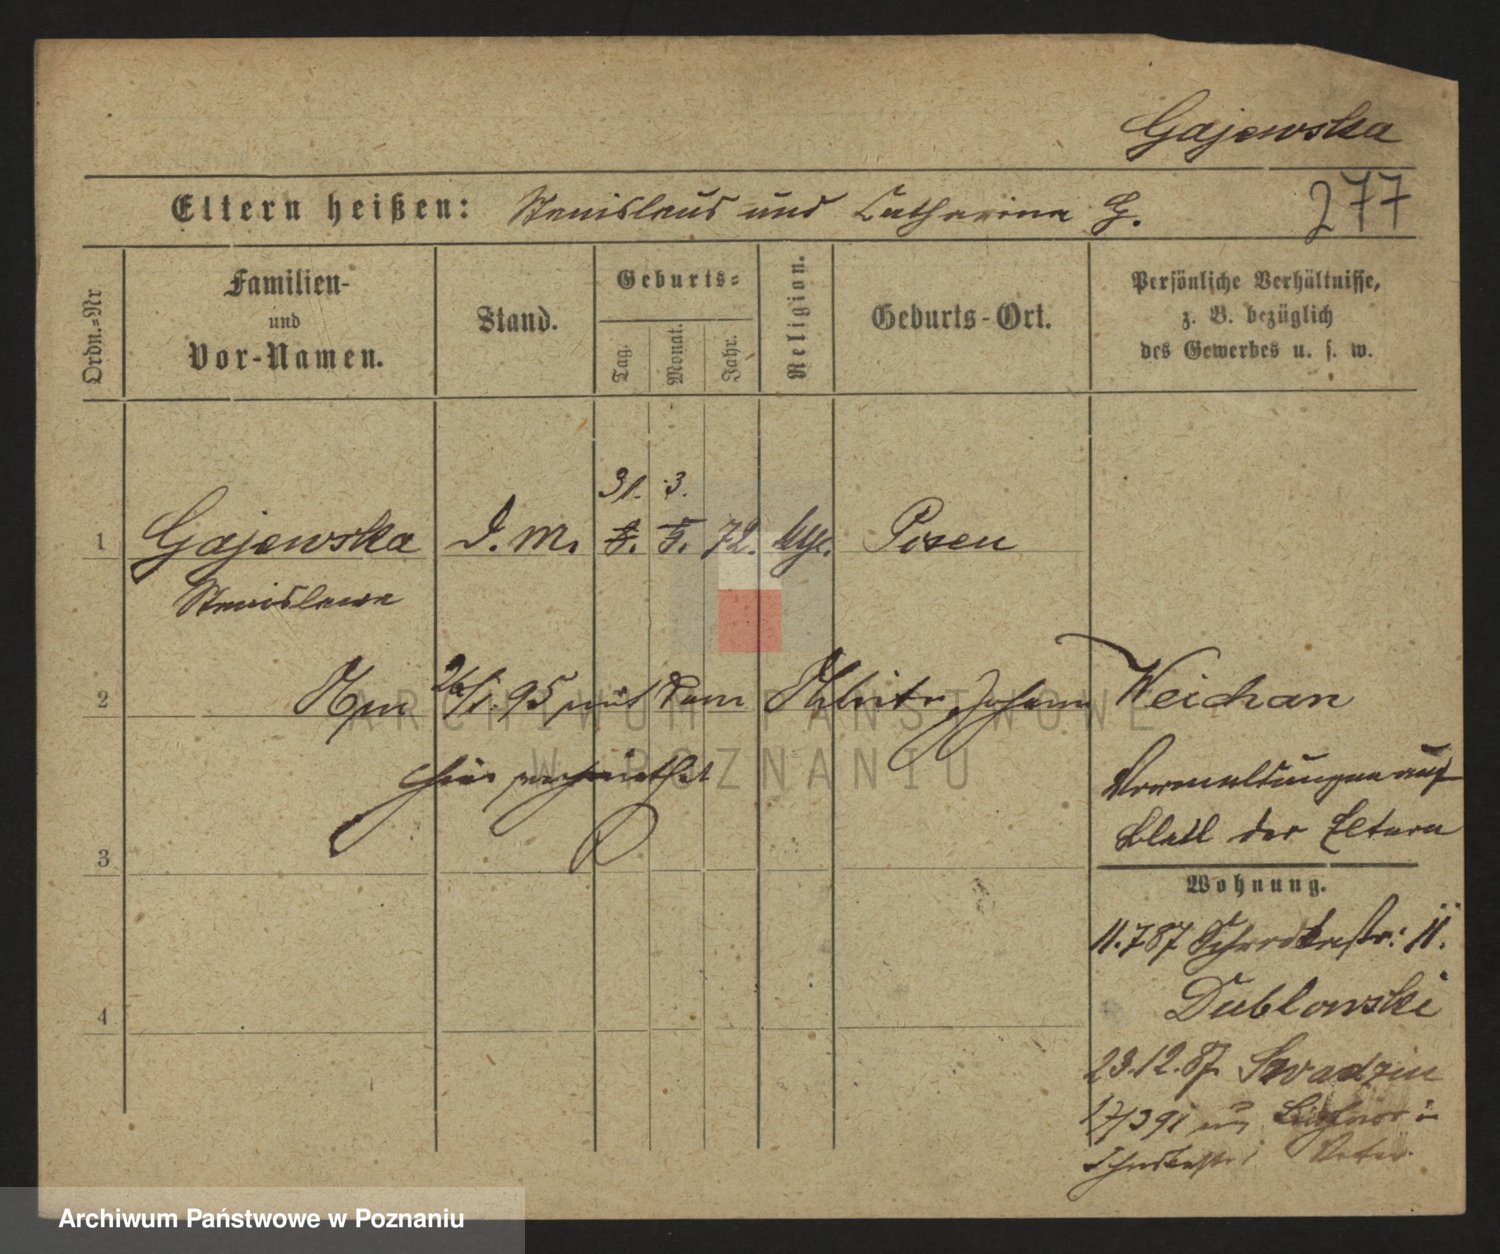 Gajewska
Eltern heißen: Stanislaus und Catharina G.
277
Ordn.-Nr
Familien-
und
Vor-Namen.
Stand.
Geburts-
Tag.
Monat.
Jahr.
Religion.
Geburts-Ort.
Persönliche Verhältnisse,
z. B. bezüglich
des Gewerbes u. s. w.
31. 3.
1 Gajewska D. M. 8. 5. 72. Posen
Stanislawa
2 26/1.95 mit dem Johann Weichan
hier verheirathet
Vermeldungen auf
Blatt der Eltern
3
Wohnung.
11.7 87 11.
Dublowski
4
23.12.87 Swadzin
17/3 91
Vater
ARCHIWUM PAŃSTWOWE
W POZNANIU
Archiwum Państwowe w Poznaniu